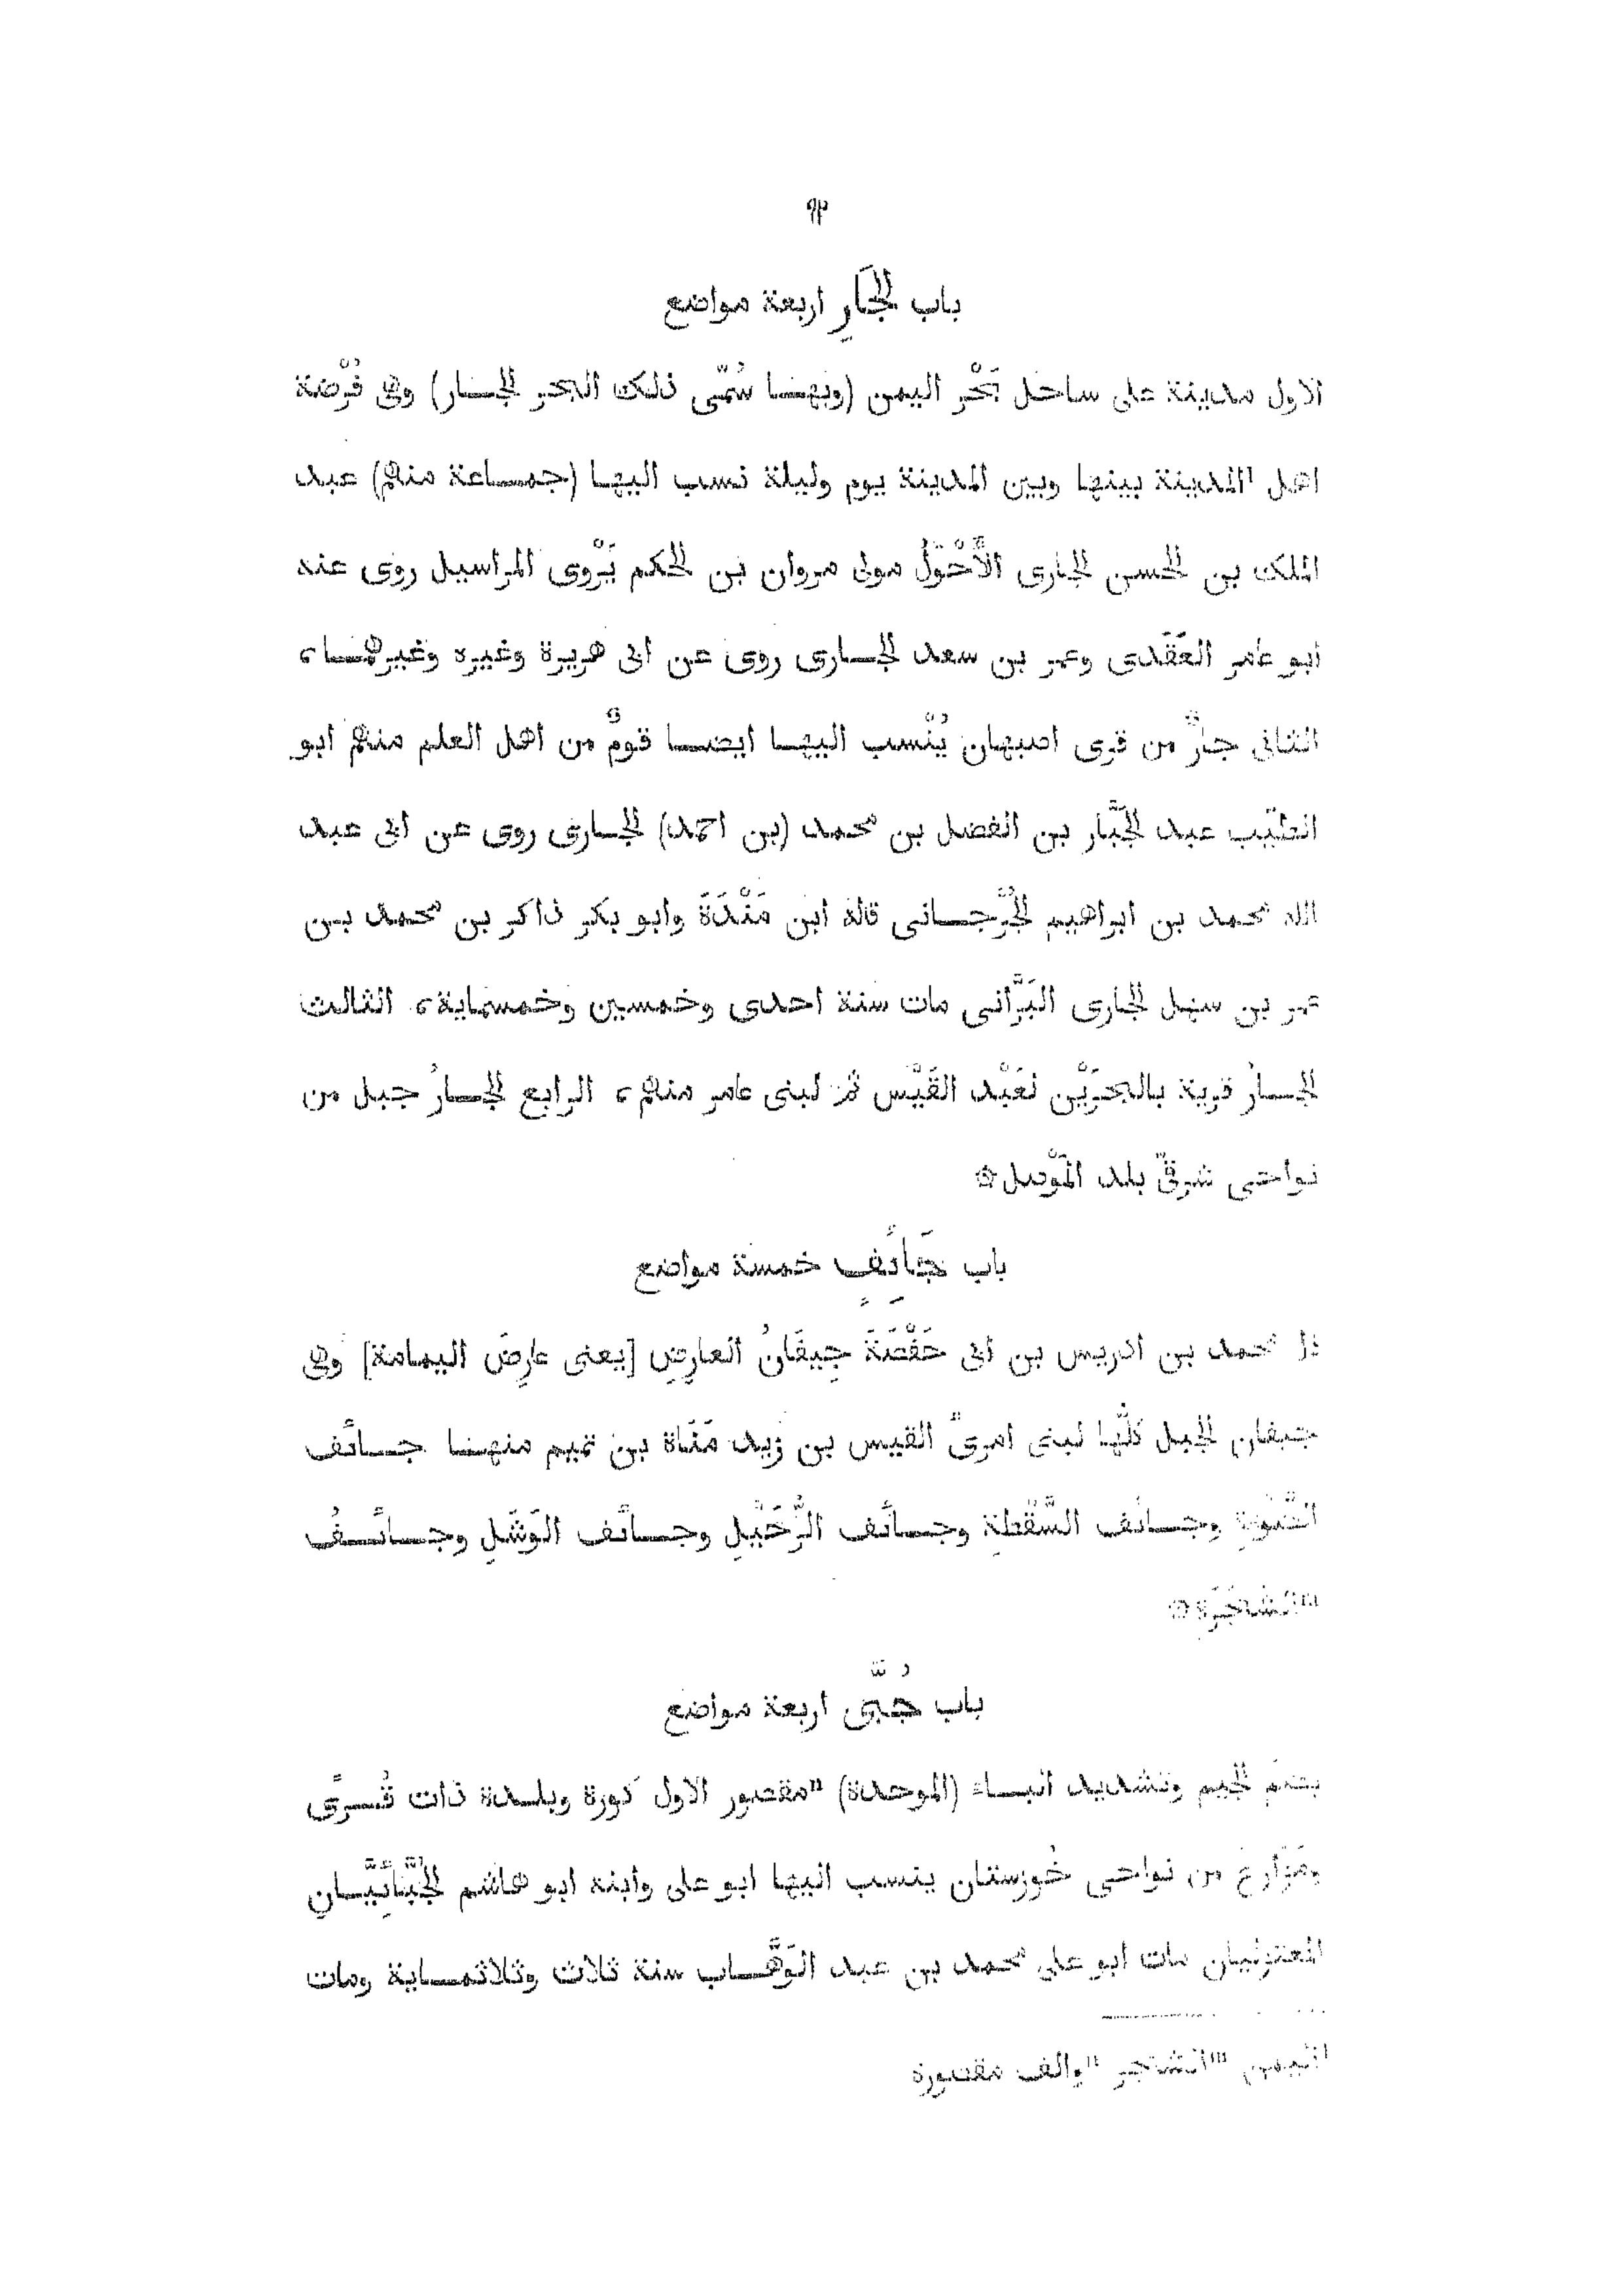 ٩٢
باب الجَارِ اربعة مواضع
الاول مدينة على ساحل بَحْر اليمن (وبها سُمّى ذلك البحر الجار) وهى فُرْضة
اهل المدينة بينها وبين المدينة يوم وليلة نسب اليها (جماعة منهم) عبد
الملك بن الحسن الجارى الأَحْوَلُ مولى مروان بن الحكم يَرْوى المراسيل روى عنه
ابو عامر العَقَدى وعمر بن سعد الجارى روى عن ابى هريرة وغيره وغيرهما،
الثانى جارٌ من قرى اصبهان يُنْسب اليها ايضا قومٌ من اهل العلم منهم ابو
الطيّب عبد الجَبَّار بن الفضل بن محمد (بن احمد) الجارى روى عن ابى عبد
الله محمد بن ابراهيم الجُرْجانى قاله ابن مَنْدَةَ وابو بكر ذاكر بن محمد بن
عمر بن سهل الجارى البَرَّانى مات سنة احدى وخمسين وخمسماية، الثالث
الجارُ قرية بالبحرَيْن لعَبْد القَيْس ثم لبنى عامر منهم، الرابع الجارُ جبل من
نواحى شرقىّ بلد المَوْصل۞
باب جَبَائِفٍ خمسة مواضع
محمد بن ادريس بن ابى حَفْصَةَ جِيفَانُ العارِضِ [يعنى عارِضَ اليمامة] وهى
جيفان الجبل كلُّها لبنى امرئ القيس بن زيد مَنَاة بن تميم منها جائف
وجائف السَّقْطةِ وجائف الرُّحَيْلِ وجائف الوَشَلِ وجائفُ
الشجَرة۞
باب جُبَّى اربعة مواضع
بضم الجيم وتشديد الباء (الموحدة) ⁿمقصور الاول كورة وبلدة ذات قُرًى
ومَزارعَ من نواحى خُوزستان ينسب اليها ابو على وابنه ابو هاشم الجُبَّائِيَّانِ
المعتزليان مات ابو على محمد بن عبد الوَهَّاب سنة ثلاث وثلاثماية ومات
الشجر ⁿوالف مقصورة